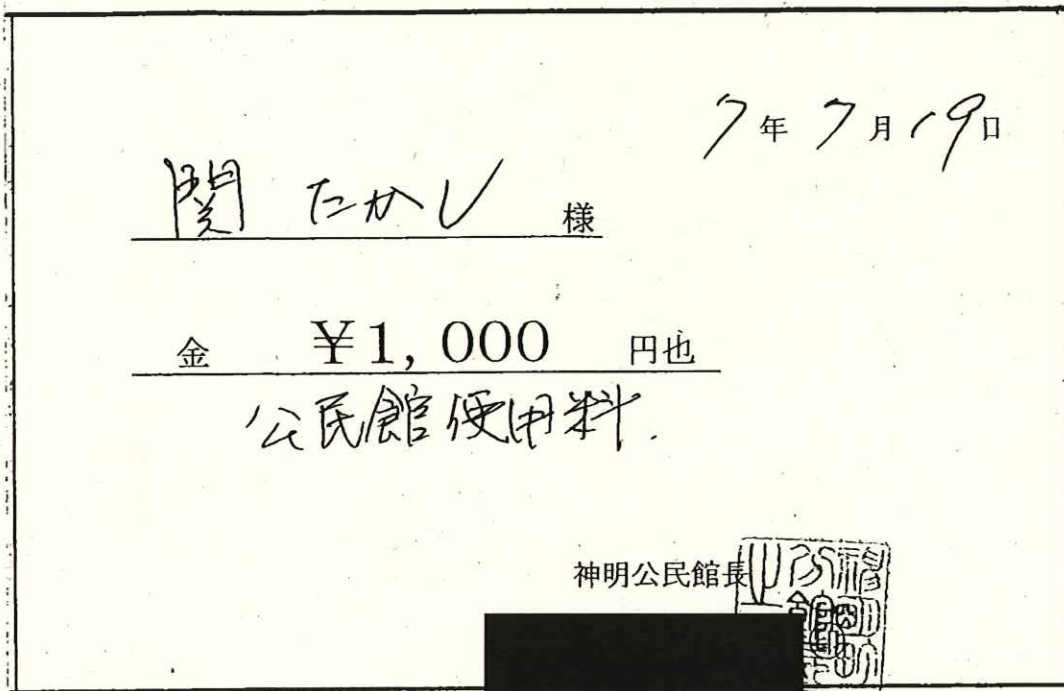 7年7月19日
関 たかし 様
金 ¥1,000 円也
公民館使用料.
神明公民館長